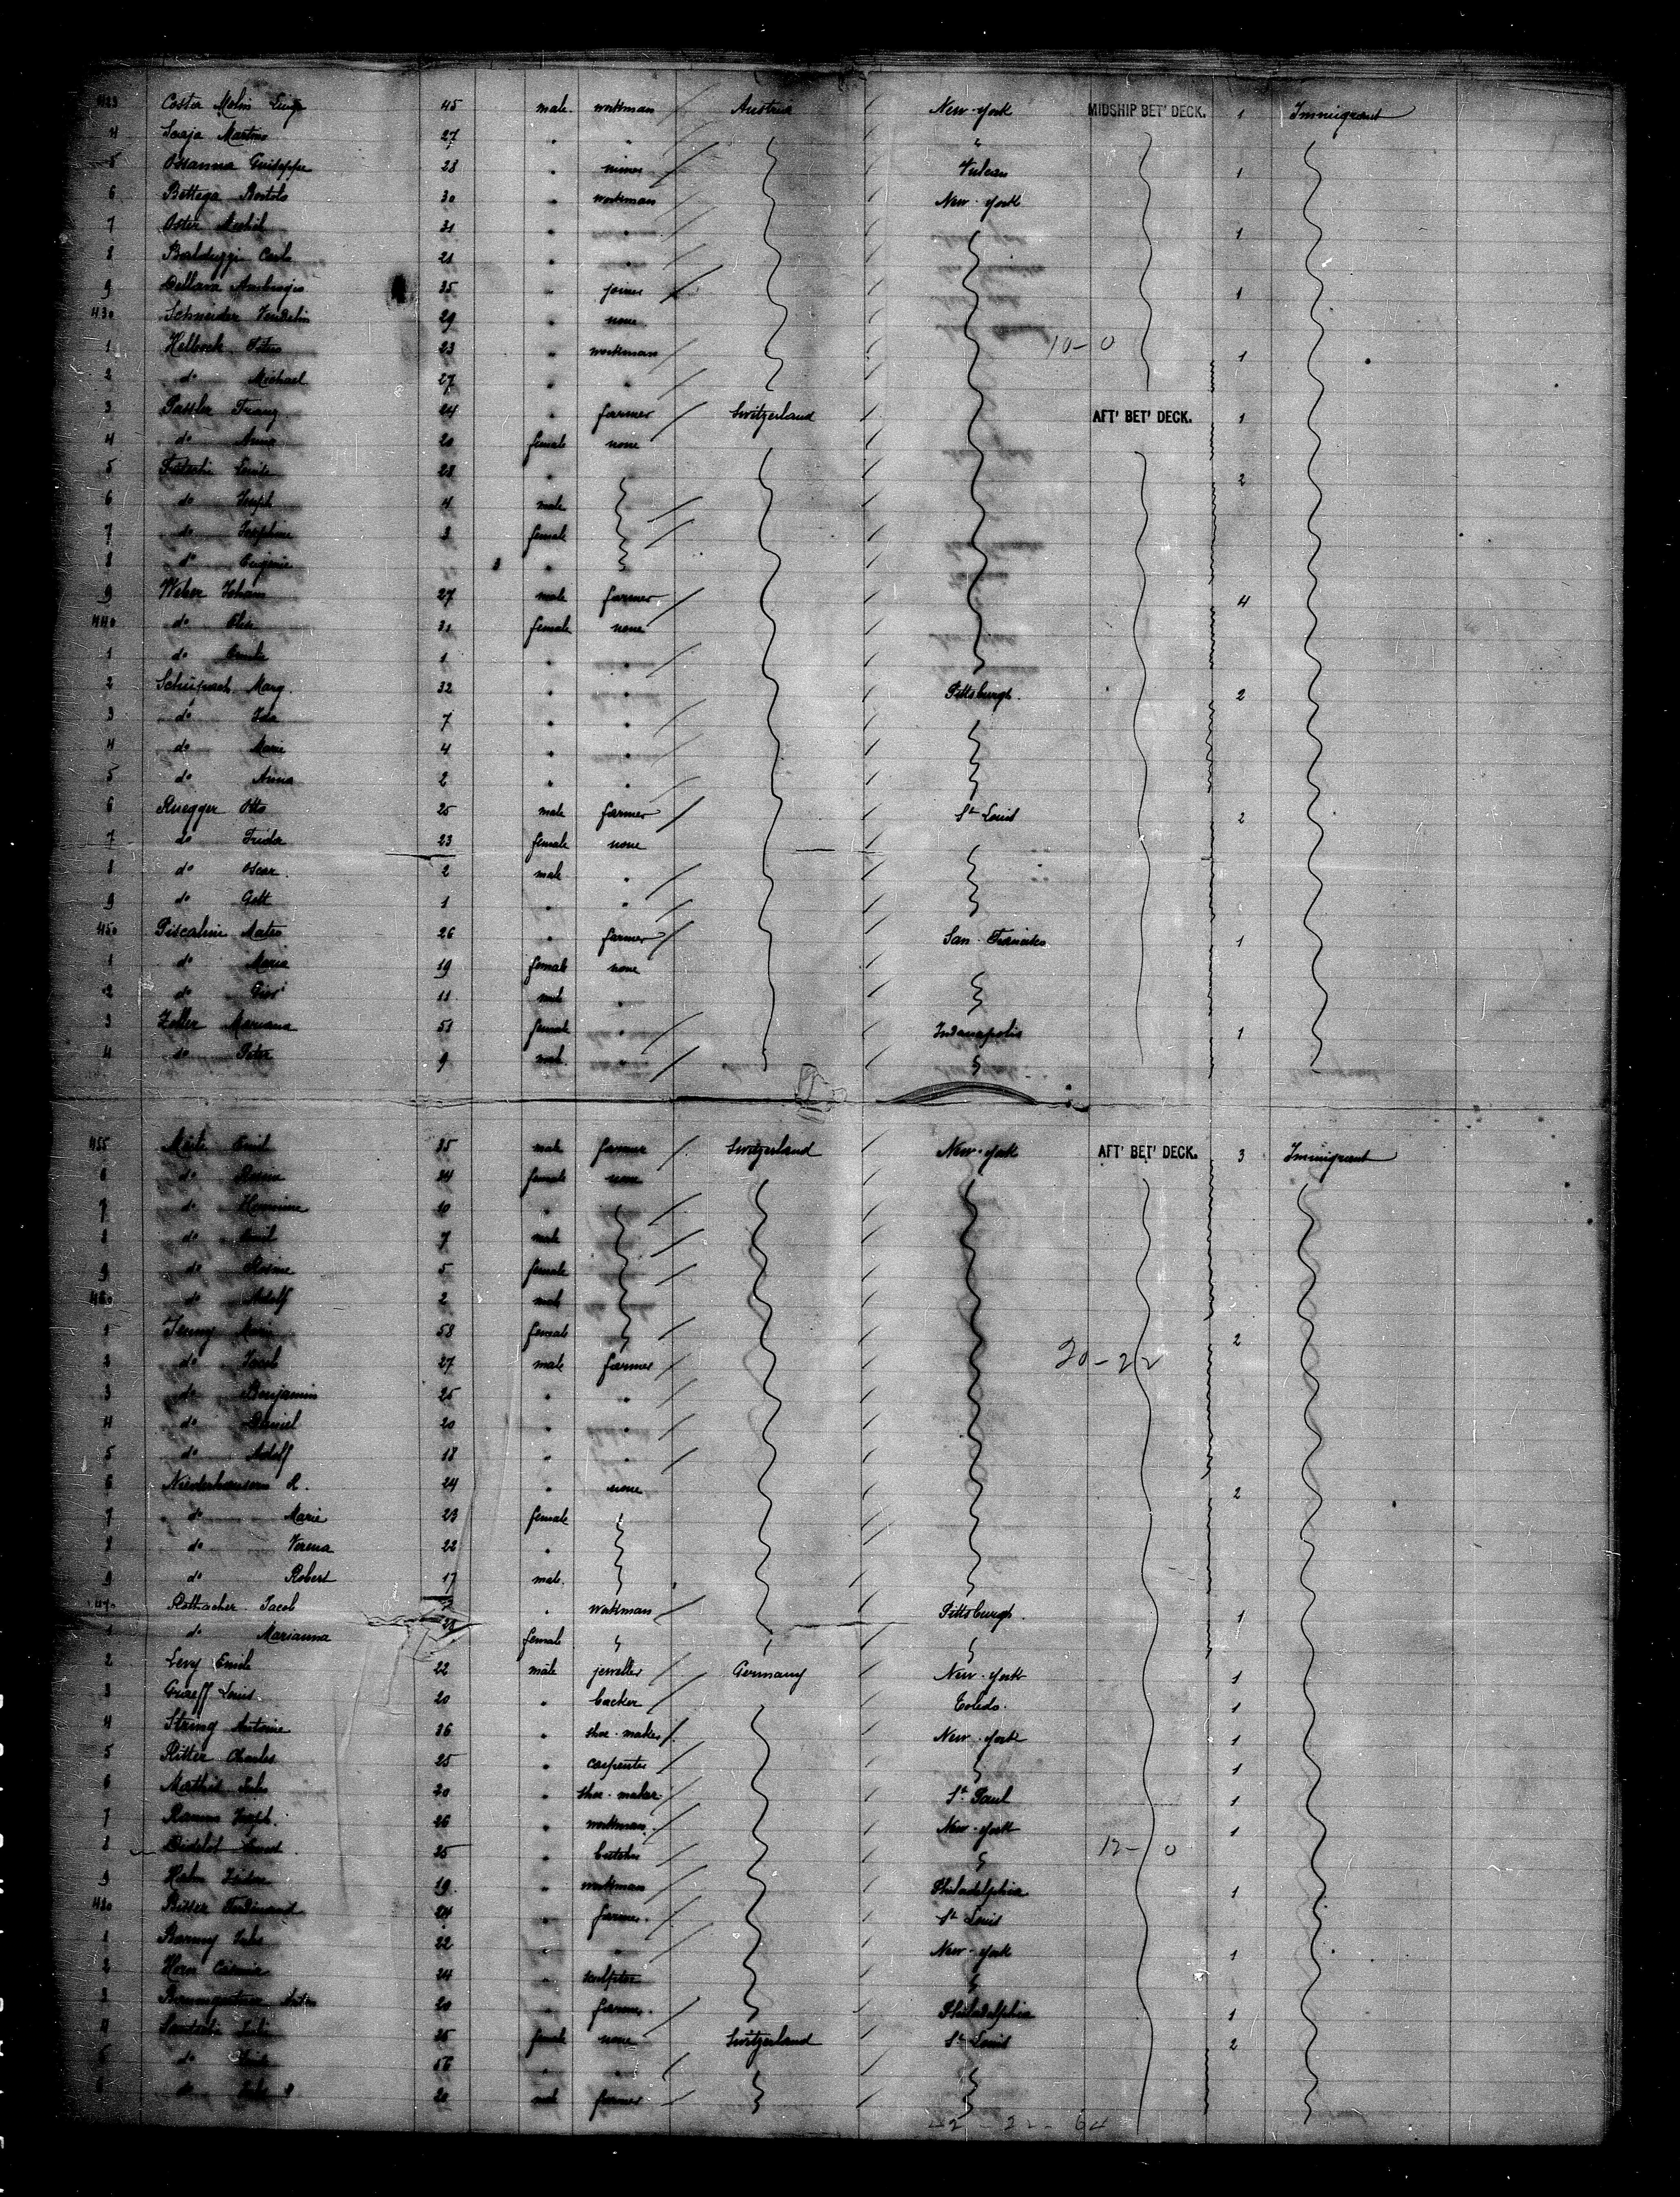 423 Coster Molin Luigi 45 male workman Austria New-York MIDSHIP BET' DECK. 1 Immigrant
4 Scaja Martino 27 " " "
5 Osanna Guiseppe 28 " miner Vulcan 1
6 Bettega Bortolo 30 " workman New-York
7 Oster Michel 31 " " 1
8 Balduzzi Carlo 21 " "
9 Dellava Ambrogio 35 " joiner 1
430 Schneider Vendelin 29 " none
1 Helbock Peter 23 " workman 10-0 1
2 do Michael 27 " "
3 Passler Franz 24 " farmer Switzerland AFT' BET' DECK. 1
4 do Anna 20 female none
5 Louise 28 " 2
6 do Joseph 4 male
7 do Josephine 3 female
8 do Eugenie "
9 Weber Johann 27 male farmer 4
440 do Elise 31 female none
1 do 1 " "
2 Schüpbach Marg. 32 " " Pittsburgh. 2
3 do Ida 7 " "
4 do Marie 4 " "
5 do Anna 2 " "
6 Ruegger Otto 25 male farmer St Louis 2
7 do Frida 23 female none
8 do Oscar. 2 male "
9 do Gott 1 " "
450 Piscalini Mateo 26 " farmer San-Francisco 1
1 do Maria 19 female none
2 do Giov 11 male "
3 Zeller Mariana 51 female " Indianapolis 1
4 do Peter 9 male "
455 Emil 35 male farmer Switzerland New-York AFT' BET' DECK. 3 Immigrant
6 do Rosine 34 female none
7 do Hermine 10 "
8 do Emil 7 male
9 do Rosine 5 female
460 do Adolf 2 male
1 Jenny Marie 58 female 2
2 do Jacob 27 male farmer 20-22
3 do Benjamin 25 " "
4 do Daniel 20 " "
5 do Adolf 18 " "
6 Niederhausern R. 24 " none 2
7 do Marie 23 female
8 do Verena 22 "
9 do Robert 17 male.
470 Rothacher Jacob " workman Pittsburgh. 1
1 do Marianna 28 female
2 Levy Emile 22 male jeweller Germany New-York 1
3 Graeff Louis. 20 " backer Toledo. 1
4 String Antoine 36 " shoe-maker New-York 1
5 Ritter Charles 25 " carpenter 1
6 Mathis Jules 20 " shoe-maker St Paul 1
7 Ramm Joseph. 26 " workman. New-York 1
8 Didelot 25 " butcher 12-0
9 Hahn Isidor 19 " workman Philadelphia 1
480 Bitter Ferdinand 24 " farmer. St Louis
1 Jules 22 " " New-York 1
2 Horn Casimir 24 " sculpter
3 Baumgartner 20 " farmer. Philadelphia 1
4 25 female none Switzerland St Louis 2
5 do 56 " "
6 do 20 male farmer
42-22-64